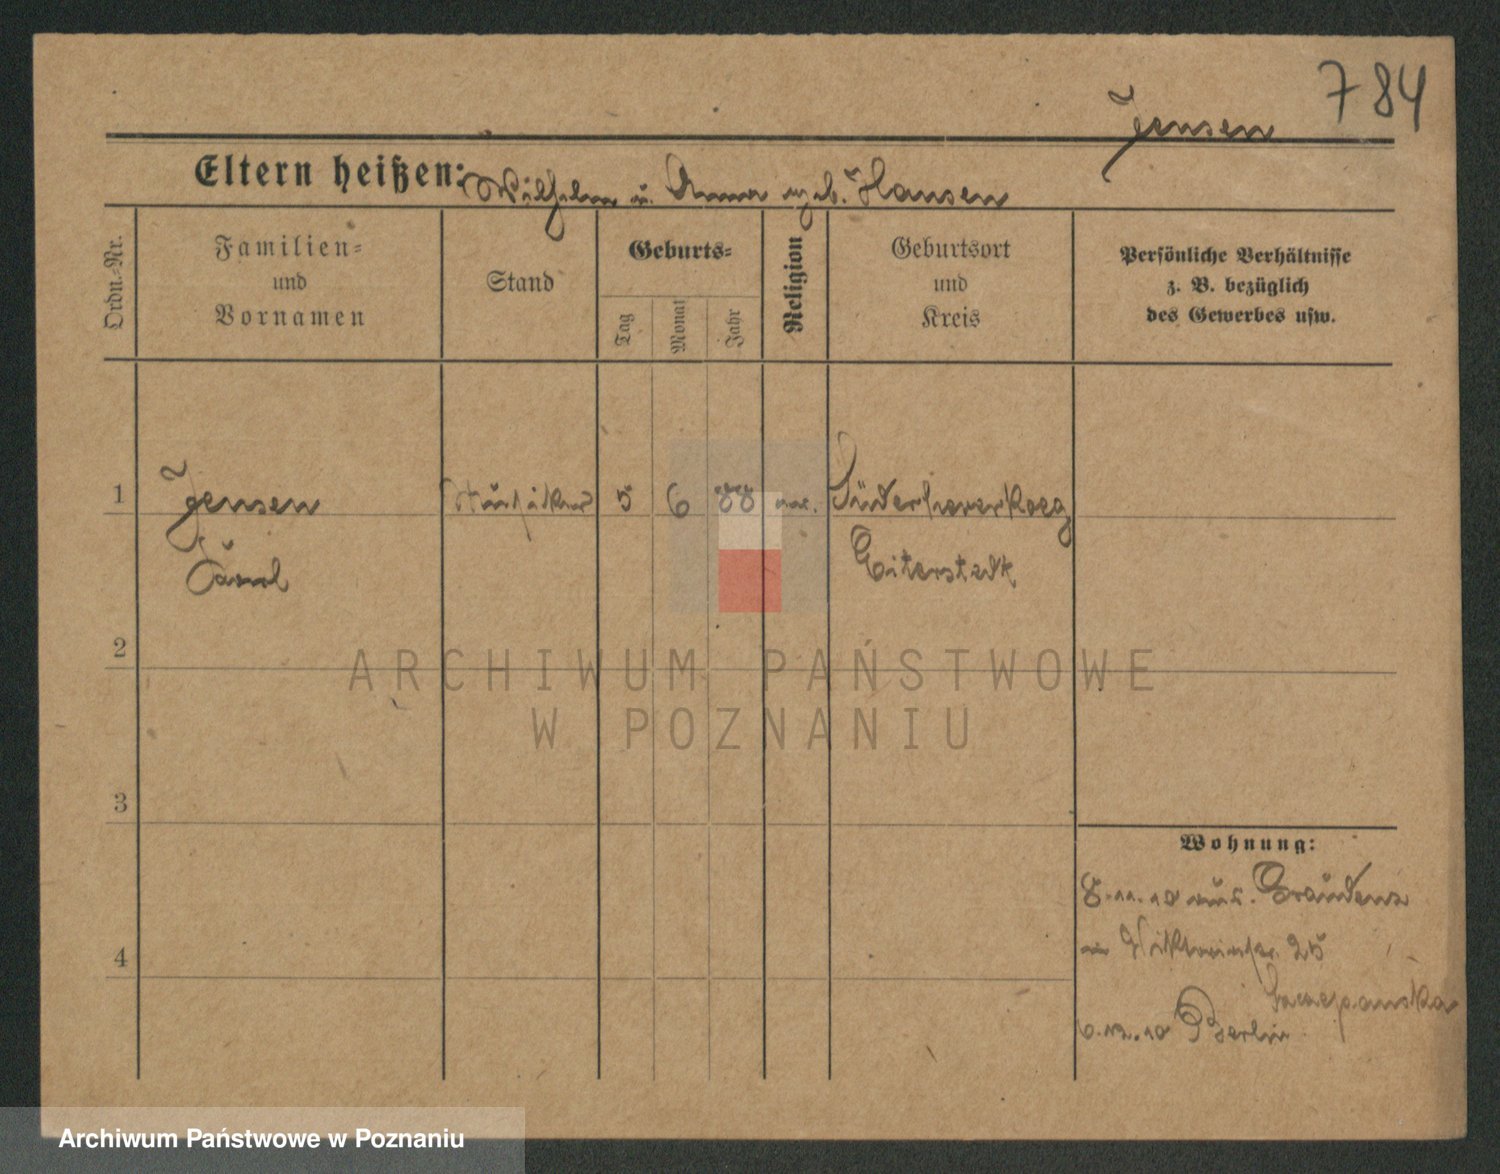 784
Jensen
Eltern heißen: Wilhelm u. Anna geb. Hansen
Ordn.-Nr.
Familien-
und
Vornamen
Stand
Geburts-
Tag
Monat
Jahr
Religion
Geburtsort
und
Kreis
Persönliche Verhältnisse
z. B. bezüglich
des Gewerbes usw.
1 Jensen 5 6 88 Süderheverkoog
Eiderstedt
2
3
4
Wohnung:
8.11.10 aus Graudenz
Viktoriastr. 25
6.12.10 Berlin
ARCHIWUM PAŃSTWOWE
W POZNANIU
Archiwum Państwowe w Poznaniu